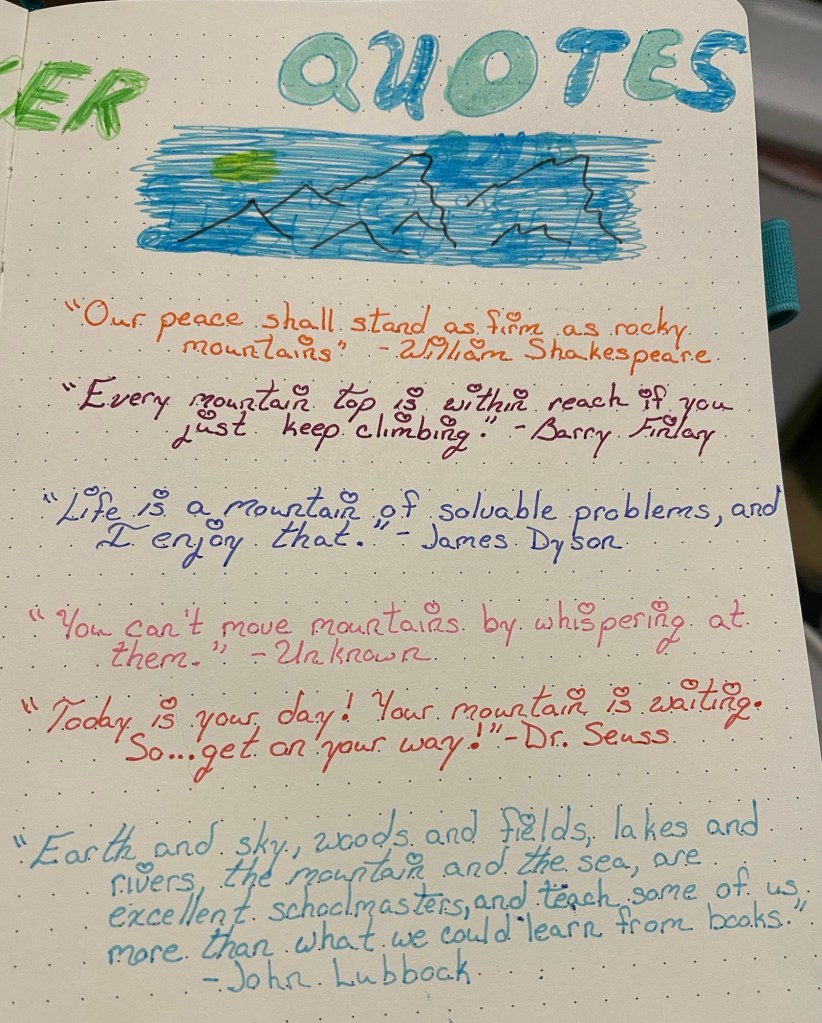 ER QUOTES
"Our peace shall stand as firm as rocky
mountains" - William Shakespeare
"Every mountain top is within reach if you
just keep climbing." - Barry Finlay
"Life is a mountain of solvable problems, and
I enjoy that." - James Dyson
"You can't move mountains by whispering at
them." - Unknown
"Today is your day! Your mountain is waiting.
So...get on your way!" - Dr. Seuss
"Earth and sky, woods and fields, lakes and
rivers, the mountain and the sea, are
excellent schoolmasters, and teach some of us
more than what we could learn from books."
- John Lubbock